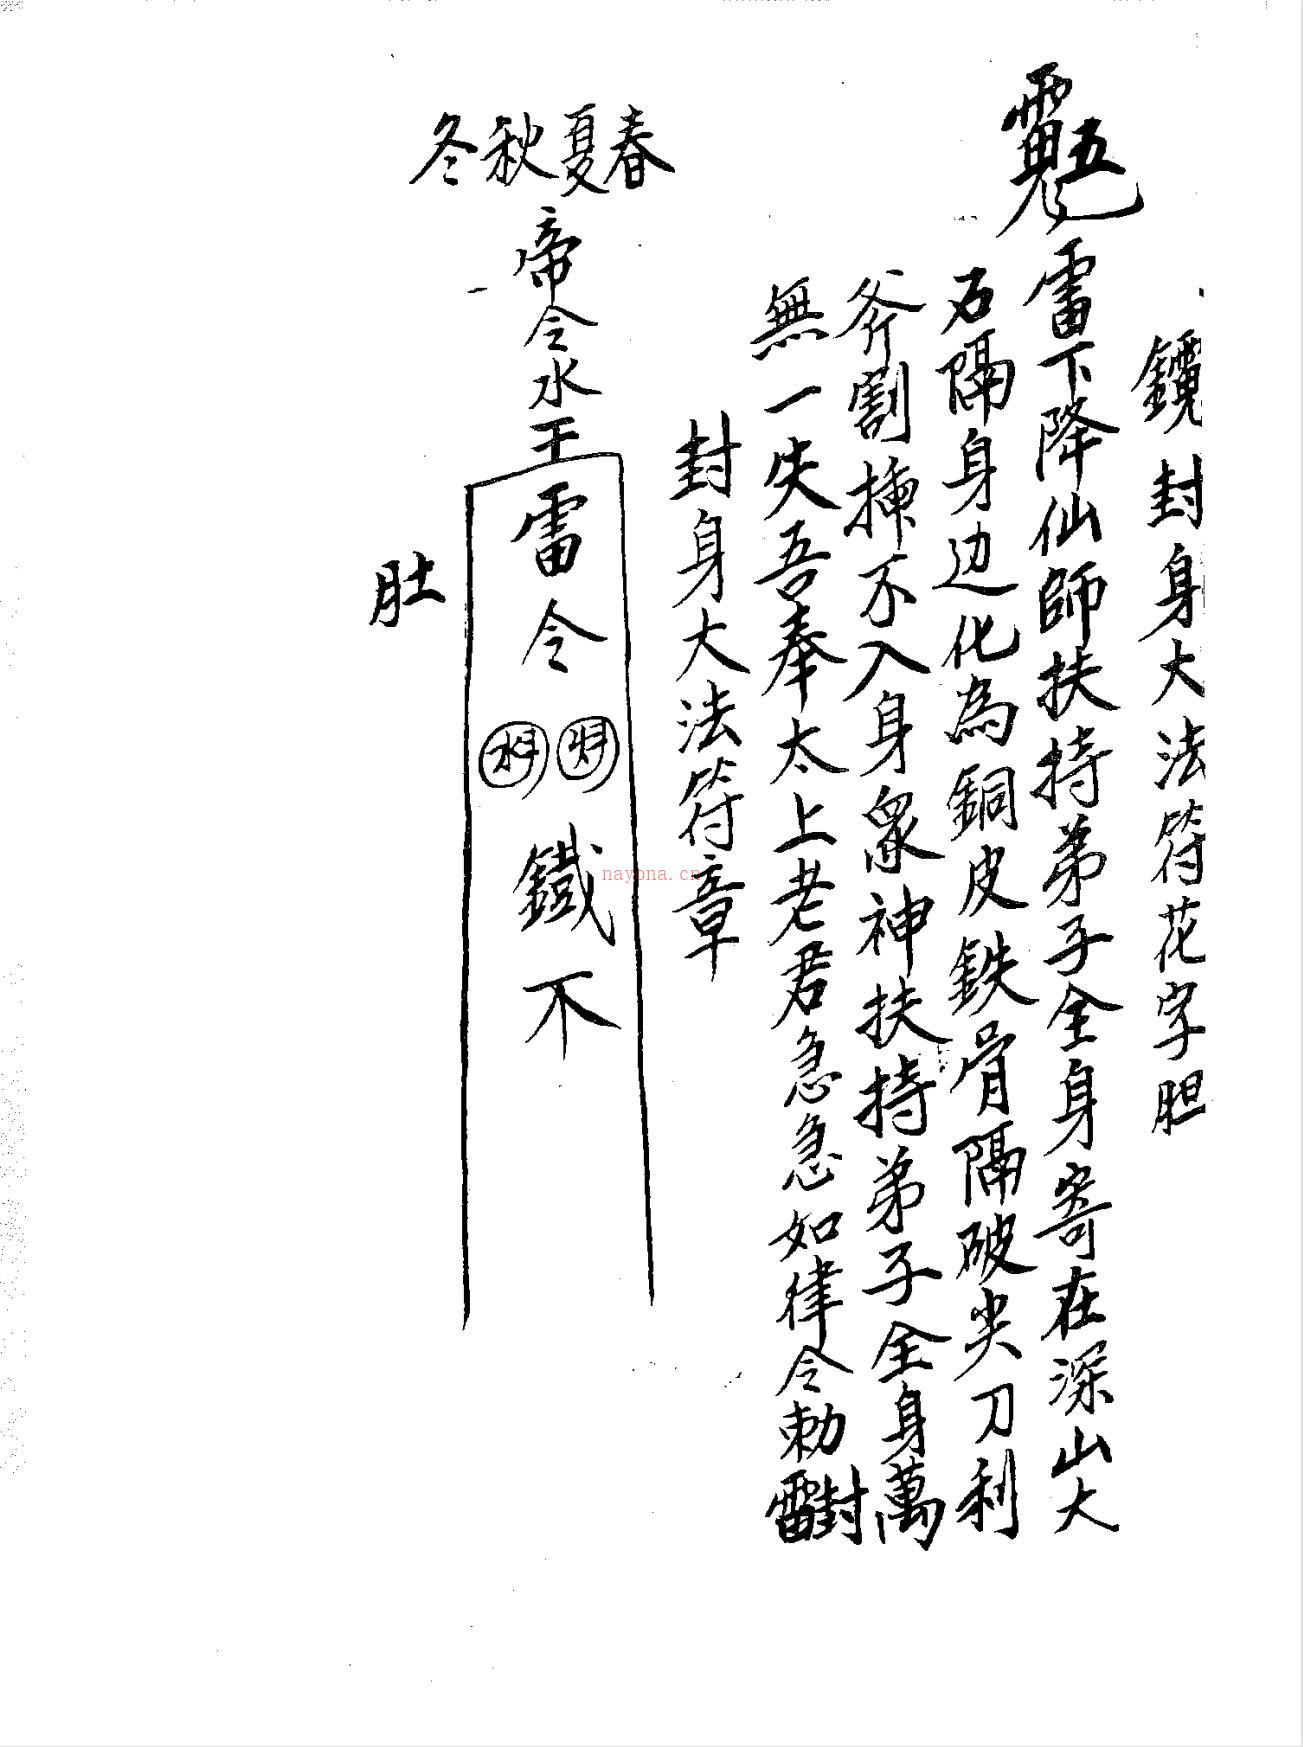 封身大法符花字胆
雷下降仙師扶持弟子全身寄在深山大
石隔身边化為銅皮鉄骨隔破尖刀利
斧割揀不入身眾神扶持弟子全身萬
無一失吾奉太上老君急急如律令勅
封身大法符章
春夏秋冬
帝令水王
雷令
鐵不
肚
nayona.cn